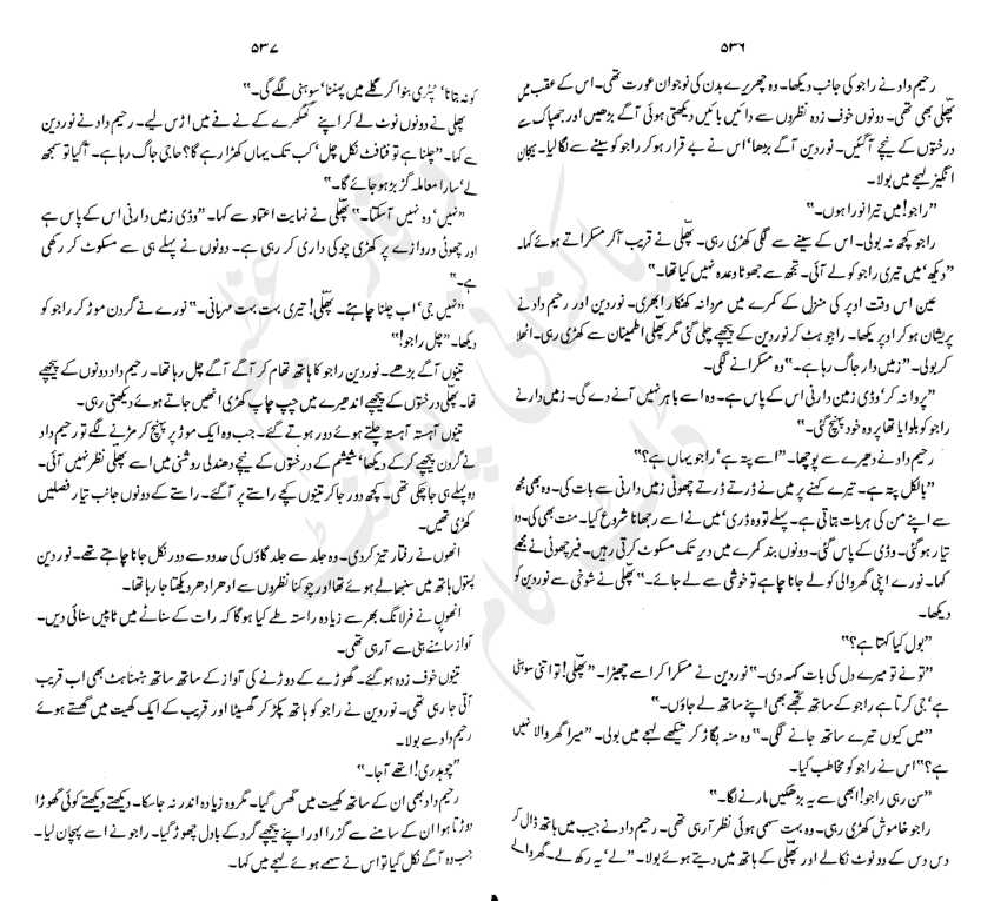 ۵۳۶
رحیم داد نے راجو کی جانب دیکھا۔ وہ چھریرے بدن کی نوجوان عورت تھی۔ اس کے عقب میں
پھلّی بھی تھی۔ دونوں خوف زدہ نظروں سے دائیں بائیں دیکھتی ہوئی آگے بڑھیں اور جھپاک سے
درختوں کے نیچے آگئیں۔ نوردین آگے بڑھا‘ اس نے بے قرار ہو کر راجو کو سینے سے لگا لیا۔ ہیجان
انگیز لہجے میں بولا۔
”راجو! میں تیرا نورا ہوں۔“
راجو کچھ نہ بولی۔ اس کے سینے سے لگی کھڑی رہی۔ پھلّی نے قریب آکر مسکراتے ہوئے کہا۔
”دیکھ‘ میں تیری راجو کو لے آئی۔ تجھ سے جھوٹا وعدہ نہیں کیا تھا۔“
عین اس وقت اوپر کی منزل کے کمرے میں مردانہ کھنکار ابھری۔ نوردین اور رحیم داد نے
پریشان ہو کر اوپر دیکھا۔ راجو ہٹ کر نوردین کے پیچھے چلی گئی مگر پھلّی اطمینان سے کھڑی رہی۔ اٹھلا
کر بولی۔ ”زمیں دار جاگ رہا ہے۔“ وہ مسکرانے لگی۔
”پروا نہ کر‘ وڈی زمین دارنی اس کے پاس ہے۔ وہ اسے باہر نہیں آنے دے گی۔ زمیں دار نے
راجو کو بلوایا تھا پر وہ خود پہنچ گئی۔“
رحیم داد نے دھیرے سے پوچھا۔ ”اسے پتہ ہے‘ راجو یہاں ہے؟“
”بالکل پتہ ہے۔ تیرے کہنے پر میں نے ڈرتے ڈرتے چھوٹی زمیں دارنی سے بات کی۔ وہ بھی مجھ
سے اپنے من کی ہر بات بتاتی ہے۔ پہلے تو وہ ڈری‘ میں نے اسے رجھانا شروع کیا۔ منت بھی کی۔ وہ
تیار ہو گئی۔ وڈی کے پاس گئی۔ دونوں بند کمرے میں دیر تک مسکوٹ کرتی رہیں۔ فیر چھوٹی نے مجھے
کہا۔ نورے اپنی گھر والی کو لے جانا چاہے تو خوشی سے لے جائے۔“ پھلّی نے شوخی سے نوردین کو
دیکھا۔
”بول کیا کہتا ہے؟“
”تونے تو میرے دل کی بات کہہ دی۔“ نوردین نے مسکرا کر اسے چھیڑا۔ ”پھلّی! تو اتنی سوہنی
ہے‘ جی کرتا ہے راجو کے ساتھ تجھے بھی اپنے ساتھ لے جاؤں۔“
”میں کیوں تیرے ساتھ جانے لگی۔“ وہ منہ بگاڑ کر تیکھے لہجے میں بولی۔ ”میرا گھر والا نہیں
ہے؟“ اس نے راجو کو مخاطب کیا۔
”سن رہی راجو! ابھی سے یہ بڑھکیں مارنے لگا۔“
راجو خاموش کھڑی رہی۔ وہ بہت سہمی ہوئی نظر آرہی تھی۔ رحیم داد نے جیب میں ہاتھ ڈال کر
دس دس کے دو نوٹ نکالے اور پھلّی کے ہاتھ میں دیتے ہوئے بولا۔ ”لے‘ یہ رکھ لے۔ گھر والے
۵۳۷
کو نہ بتانا‘ پٹری بنوا کر گلے میں پہننا‘ سوہنی لگے گی۔“
پھلی نے دونوں نوٹ لے کر اپنے گھگرے کے نے نے میں اڑس لیے۔ رحیم داد نے نوردین
سے کہا۔ ”چلنا ہے تو فٹافٹ نکل چل‘ کب تک یہاں کھڑا رہے گا؟ حاجی جاگ رہا ہے۔ آگیا تو سمجھ
لے‘ سارا معاملہ گڑبڑ ہو جائے گا۔“
”نہیں‘ وہ نہیں آسکتا۔“ پھلّی نے نہایت اعتماد سے کہا۔ ”وڈی زمیں دارنی اس کے پاس ہے
اور چھوٹی دروازے پر کھڑی چوکی داری کر رہی ہے۔ دونوں نے پہلے ہی سے مسکوٹ کر رکھی
ہے۔“
”نہیں جی‘ اب چلنا چاہئے۔ پھلّی! تیری بہت بہت مہربانی۔“ نورے نے گردن موڑ کر راجو کو
دیکھا۔ ”چل راجو!“
تینوں آگے بڑھے۔ نوردین راجو کا ہاتھ تھام کر آگے آگے چل رہا تھا۔ رحیم داد دونوں کے پیچھے
تھا۔ پھلّی درختوں کے پیچھے اندھیرے میں چپ چاپ کھڑی انھیں جاتے ہوئے دیکھتی رہی۔
تینوں آہستہ آہستہ چلتے ہوئے دور ہوتے گئے۔ جب وہ ایک موڑ پر پہنچ کر مڑنے لگے تو رحیم داد
نے گردن پیچھے کر کے دیکھا‘ شیشم کے درختوں کے نیچے دھندلی روشنی میں اسے پھلّی نظر نہیں آئی۔
وہ پہلے ہی جا چکی تھی۔ کچھ دور جا کر تینوں کچے راستے پر آگئے۔ راستے کے دونوں جانب تیار فصلیں
کھڑی تھیں۔
انھوں نے رفتار تیز کر دی۔ وہ جلد سے جلد گاؤں کی حدود سے دور نکل جانا چاہتے تھے۔ نوردین
پستول ہاتھ میں سنبھالے ہوئے تھا اور چوکنا نظروں سے ادھر ادھر دیکھتا جا رہا تھا۔
انھوں نے فرلانگ بھر سے زیادہ راستہ طے کیا ہوگا کہ رات کے سناٹے میں ٹاپیں سنائی دیں۔
آواز سامنے ہی سے آرہی تھی۔
تینوں خوف زدہ ہو گئے۔ گھوڑے کے دوڑنے کی آواز کے ساتھ ساتھ ہنہناہٹ بھی اب قریب
آتی جا رہی تھی۔ نوردین نے راجو کو ہاتھ پکڑ کر گھسیٹا اور قریب کے ایک کھیت میں گھستے ہوئے
رحیم داد سے بولا۔
”چوہدری! اتھے آجا۔“
رحیم داد بھی ان کے ساتھ کھیت میں گھس گیا۔ مگر وہ زیادہ اندر نہ جاسکا۔ دیکھتے دیکھتے کوئی گھوڑا
دوڑتا ہوا ان کے سامنے سے گزرا اور اپنے پیچھے گرد کے بادل چھوڑ گیا۔ راجو نے اسے پہچان لیا۔
جب وہ آگے نکل گیا تو اس نے سہمے ہوئے لہجے میں کہا۔